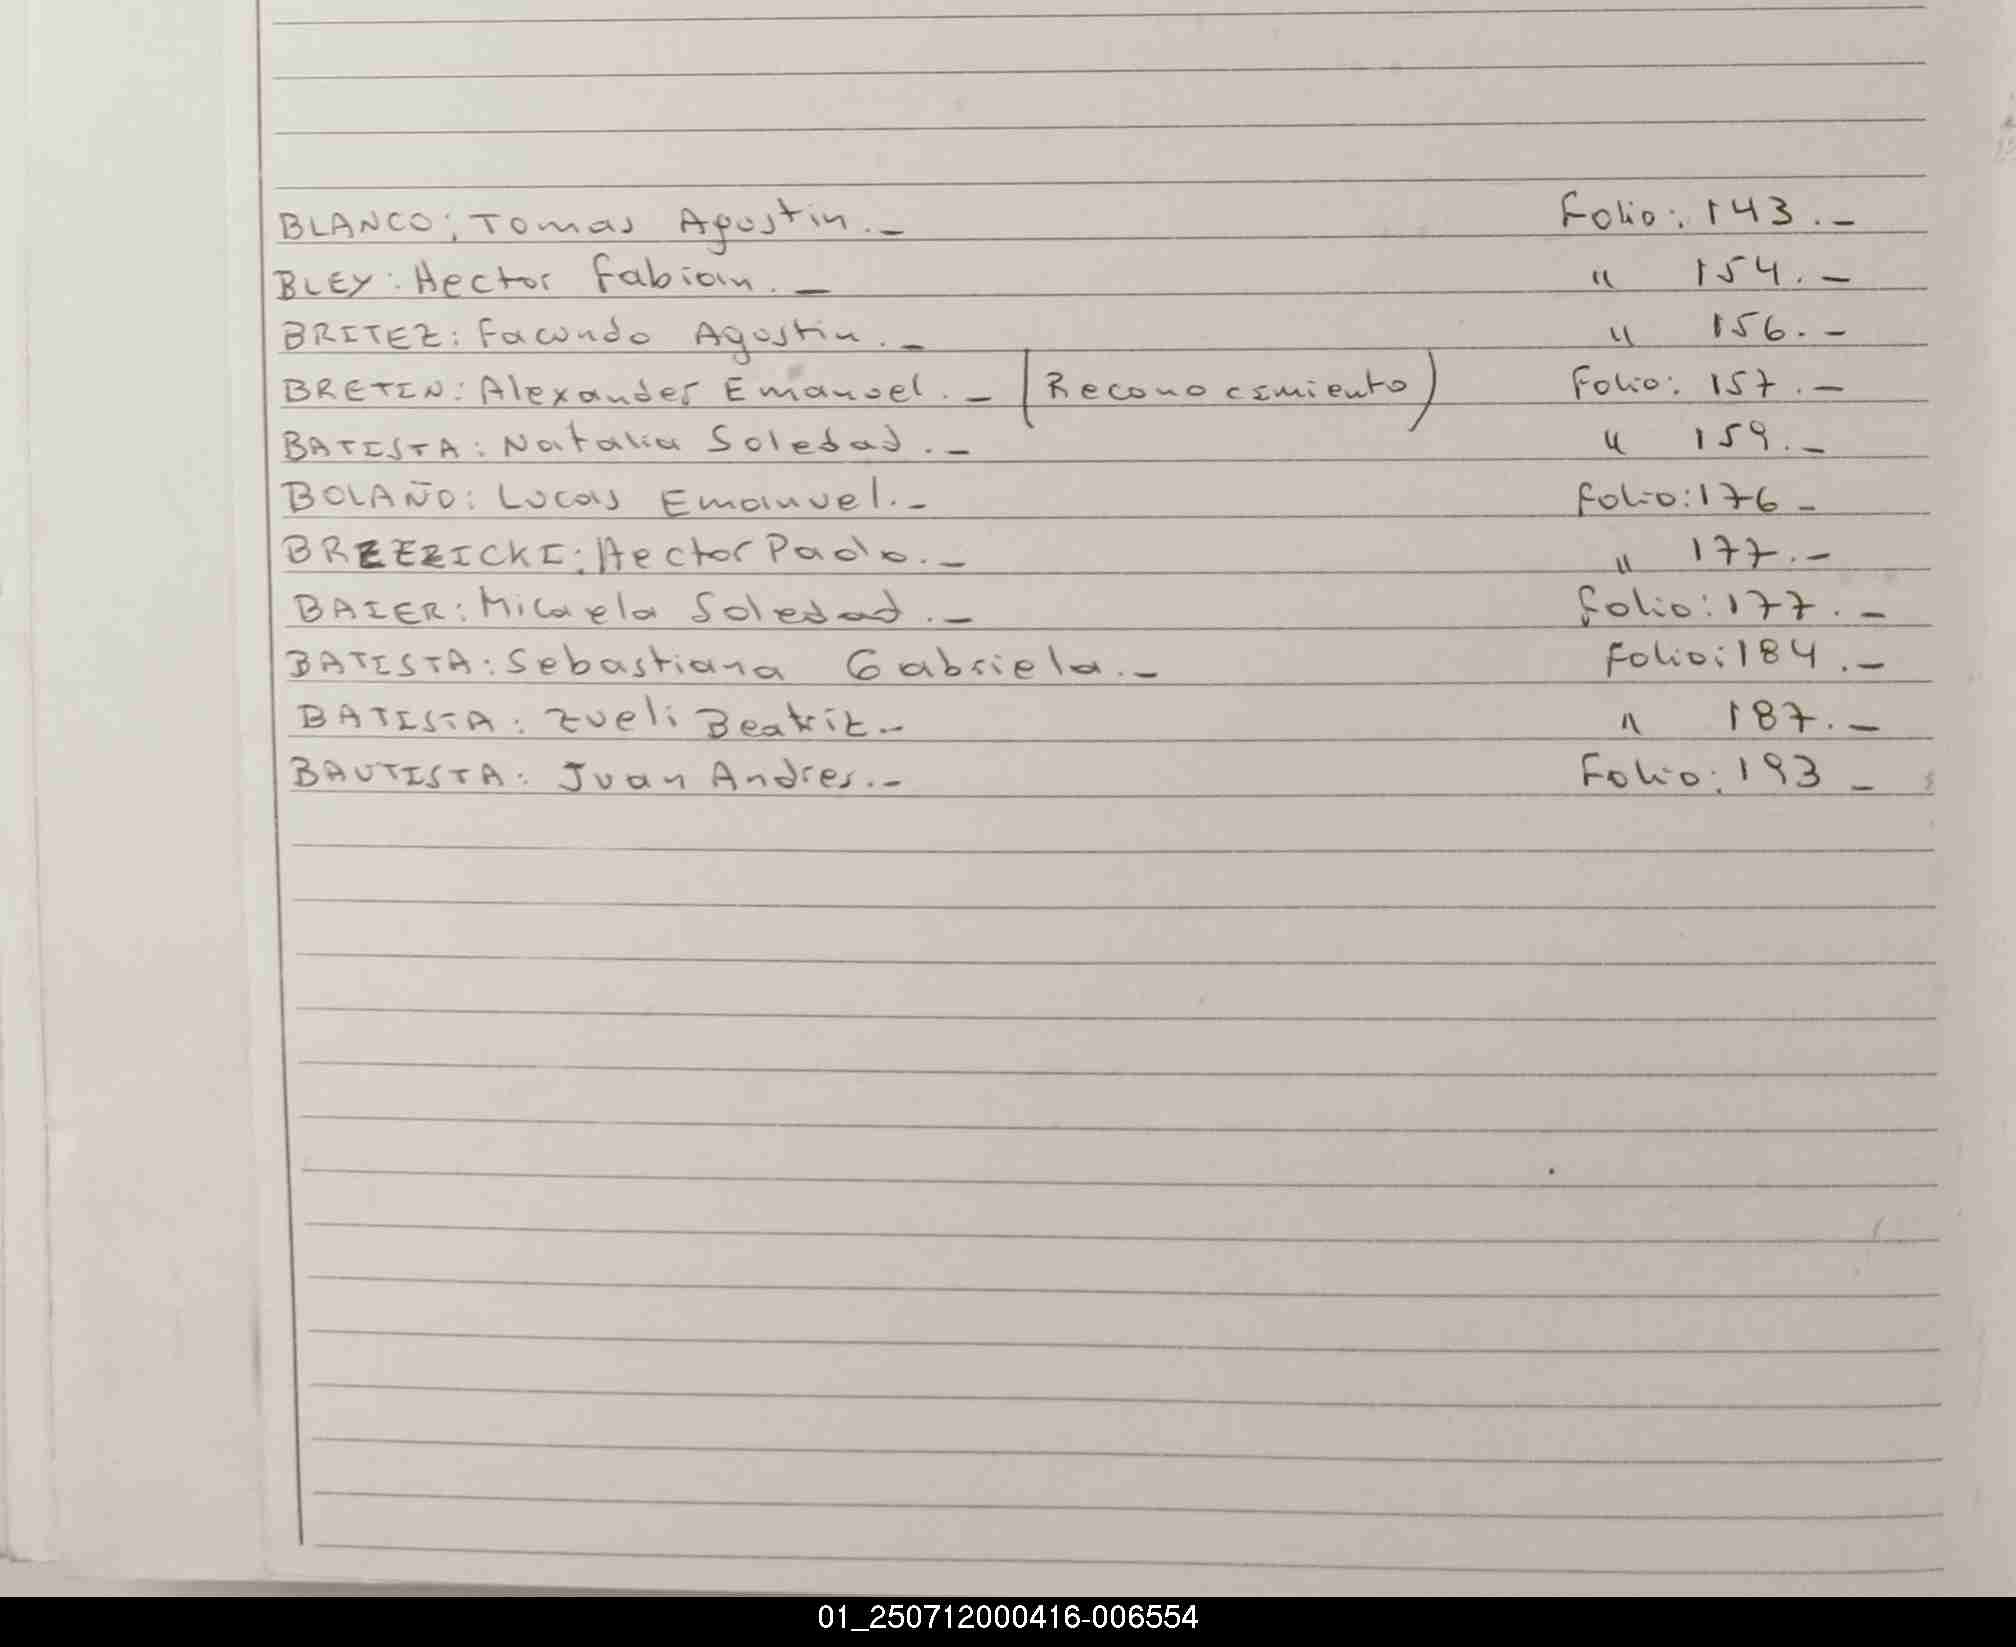 BLANCO: Tomas Agustin._ Folio: 143._
BLEY: Hector Fabian._ " 154._
BRITEZ: Facundo Agustin._ " 156._
BRETIN: Alexander Emanuel._ (Reconocimiento) Folio: 157._
BATISTA: Natalia Soledad._ " 159._
BOLAÑO: Lucas Emanuel._ Folio: 176_
Hector Paolo._ " 177._
BAIER: Micaela Soledad._ Folio: 177._
BATISTA: Sebastiana Gabriela._ Folio: 184._
BATISTA: Zueli Beatriz._ " 187._
BAUTISTA: Juan Andres._ Folio: 193_
01_250712000416-006554